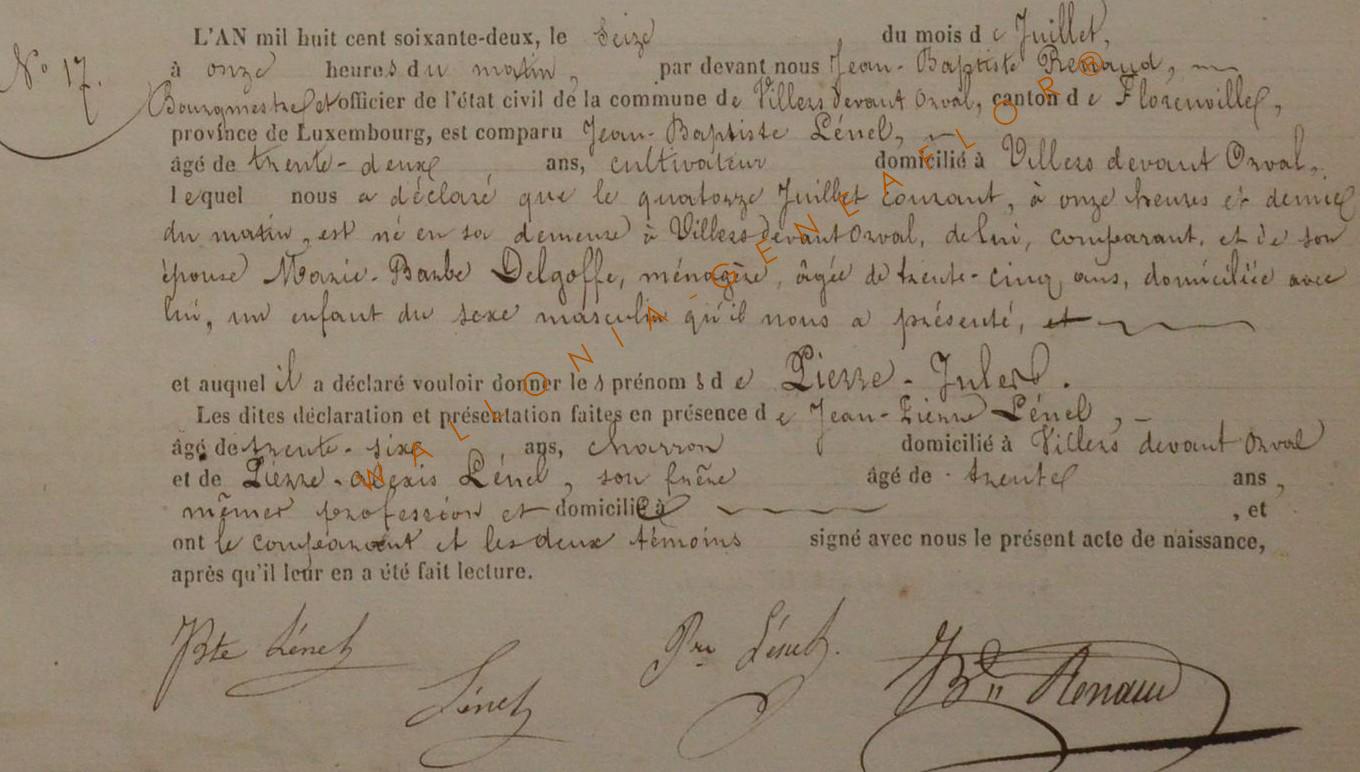 L'AN mil huit cent soixante-deux, le Seize du mois de Juillet,
N° 17. à onze heures du matin, par devant nous Jean-Baptiste Renaud,
Bourgmestre et officier de l'état civil de la commune de Villers devant Orval, canton de Florenville,
province de Luxembourg, est comparu Jean-Baptiste Lénel,
âgé de trente-deux, ans, cultivateur domicilié à Villers devant Orval,
lequel nous a déclaré que le quatorze Juillet courant, à onze heures et demie
du matin, est né en sa demeure à Villers devant Orval, de lui, comparant, et de son
épouse Marie-Barbe Delgoffe, ménagère, âgée de trente-cinq ans, domiciliée avec
lui, un enfant du sexe masculin qu'il nous a présenté, et
et auquel il a déclaré vouloir donner les prénoms de Pierre-Jules.
Les dites déclaration et présentation faites en présence de Jean-Pierre Lénel,
âgé de trente-six, ans, charron domicilié à Villers devant Orval
et de Pierre-alexis Lénel, son frère âgé de trente ans,
même profession et domicilié à , et
ont le comparant et les deux témoins signé avec nous le présent acte de naissance,
après qu'il leur en a été fait lecture.
JBte Lénel
Lénel
Pre Lénel.
JBte Renaud
WALLONIA-GENEAELOR®